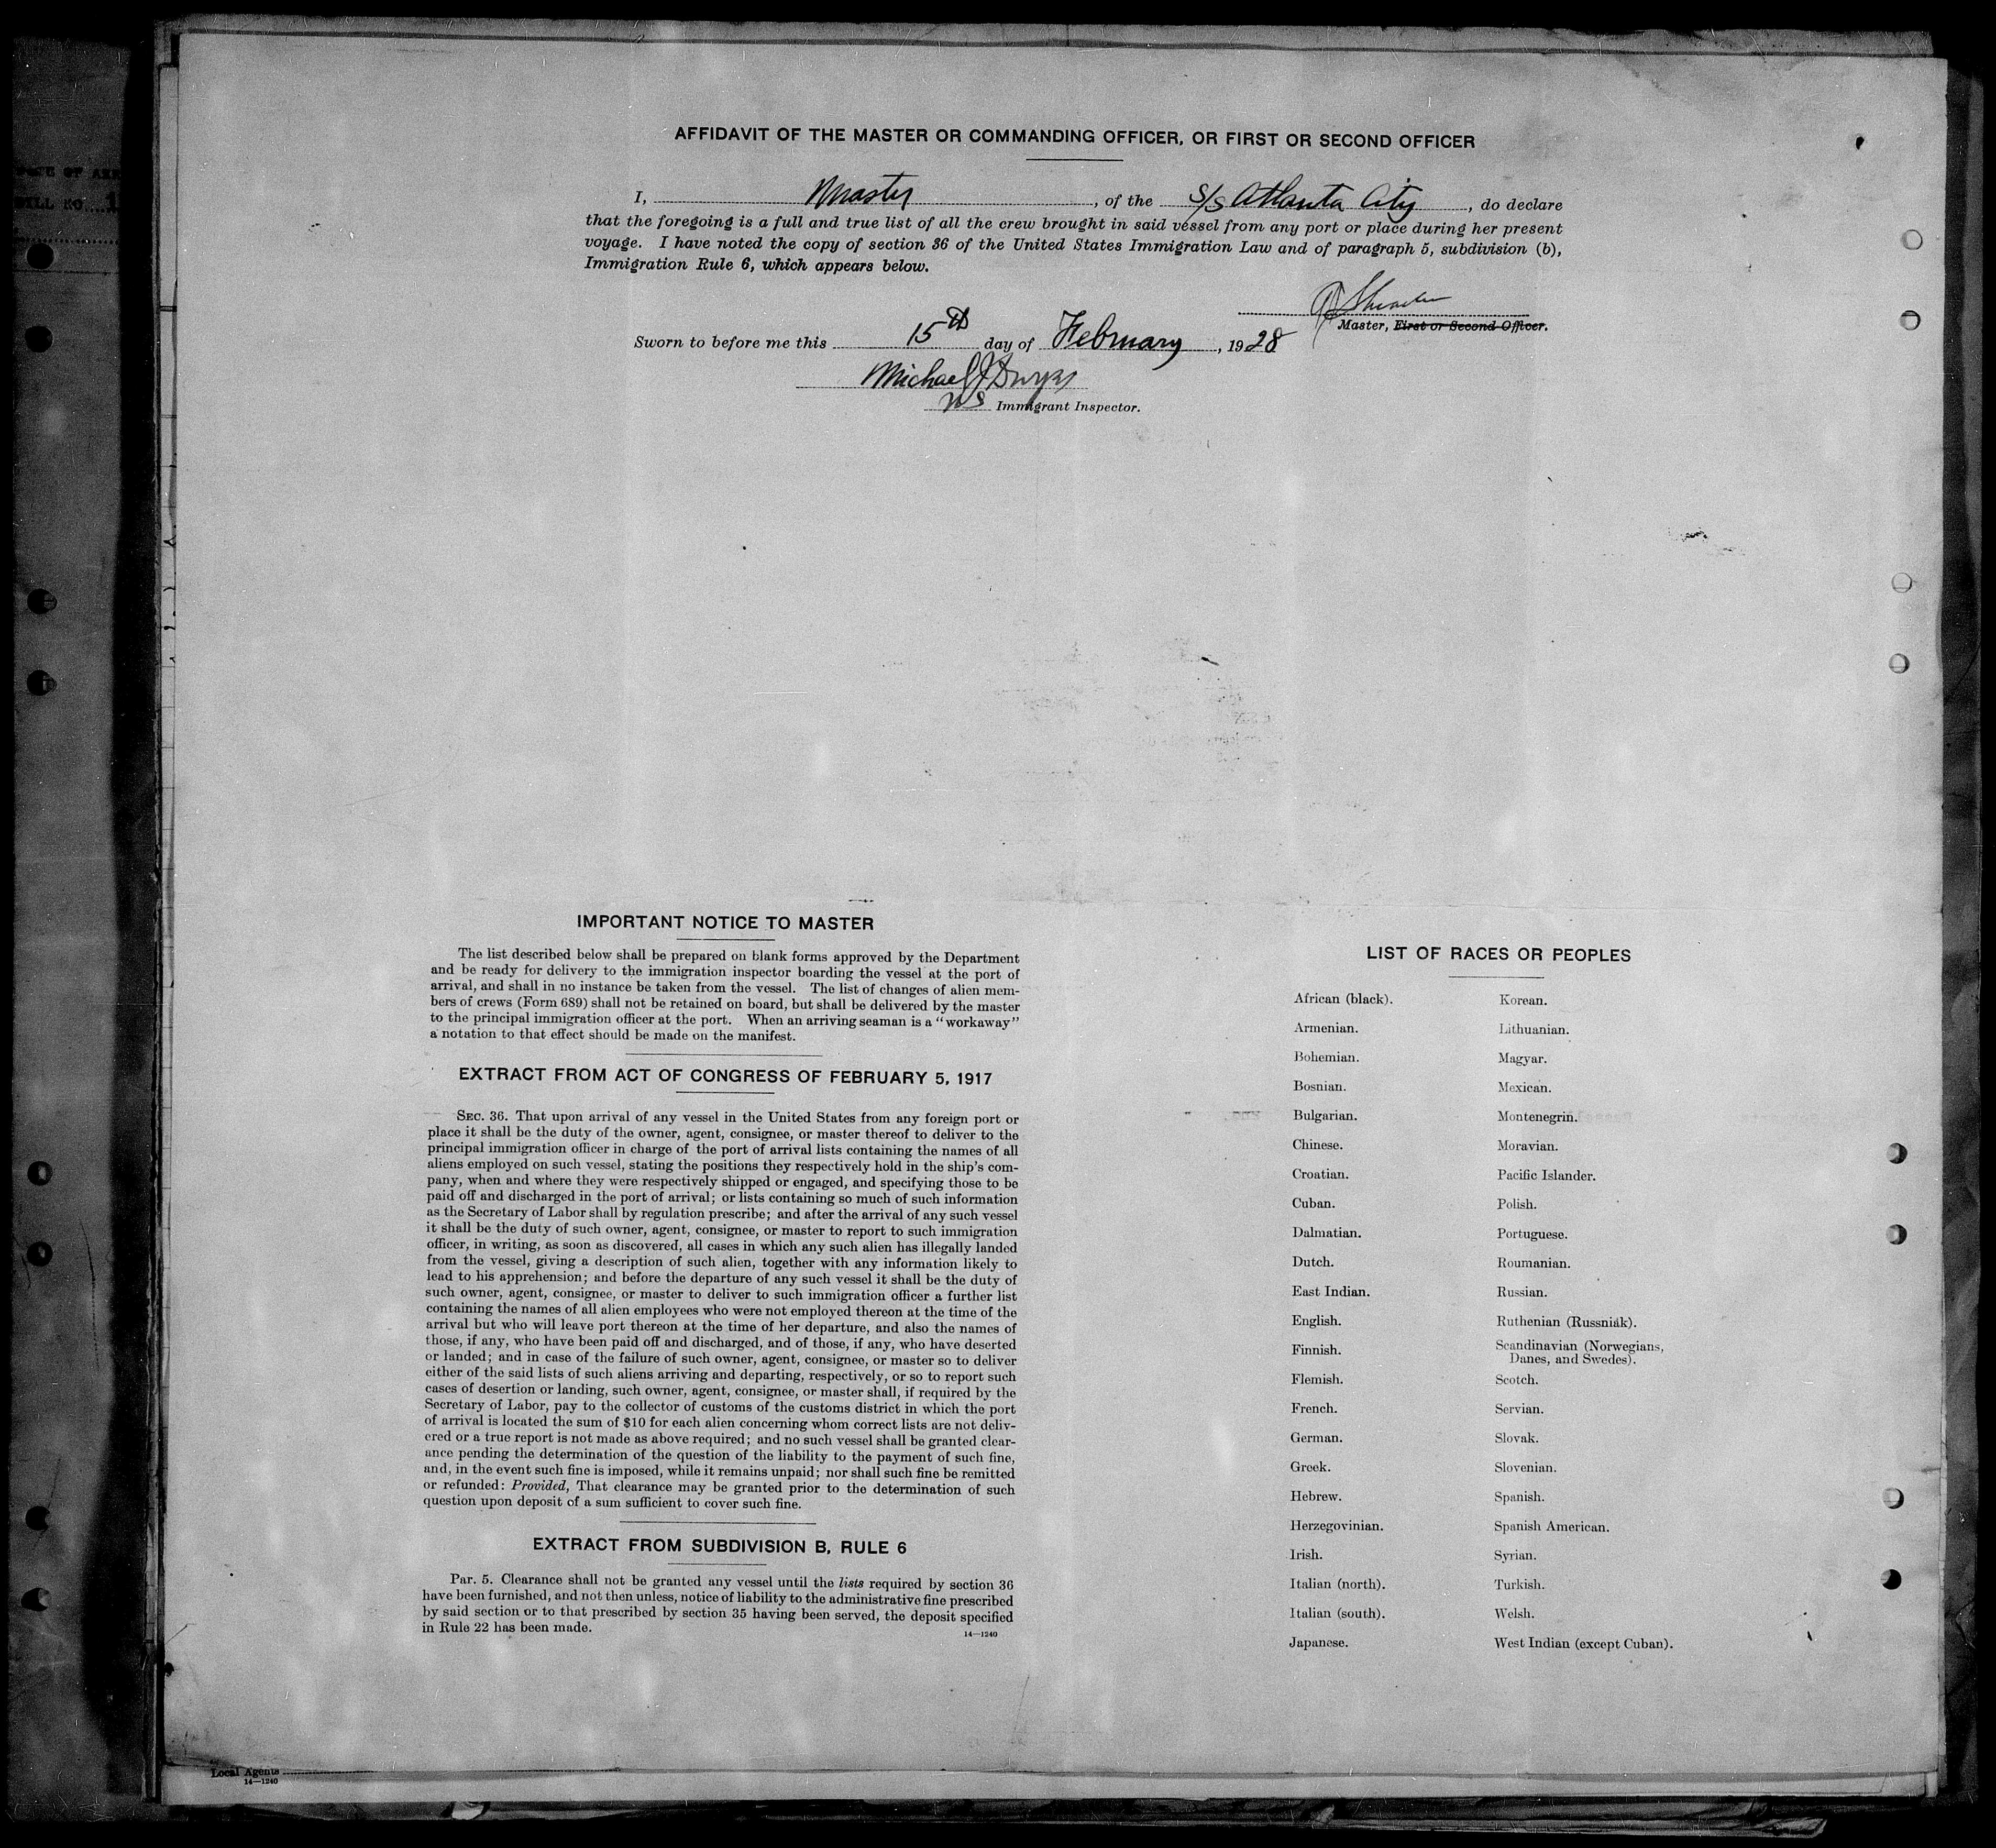 AFFIDAVIT OF THE MASTER OR COMMANDING OFFICER, OR FIRST OR SECOND OFFICER
I, Master, of the S/S Atlanta City, do declare
that the foregoing is a full and true list of all the crew brought in said vessel from any port or place during her present
voyage. I have noted the copy of section 36 of the United States Immigration Law and of paragraph 5, subdivision (b),
Immigration Rule 6, which appears below.
Master, First or Second Officer.
Sworn to before me this 15th day of February, 1928
Michael J
US Immigrant Inspector.
IMPORTANT NOTICE TO MASTER
The list described below shall be prepared on blank forms approved by the Department
and be ready for delivery to the immigration inspector boarding the vessel at the port of
arrival, and shall in no instance be taken from the vessel. The list of changes of alien mem-
bers of crews (Form 689) shall not be retained on board, but shall be delivered by the master
to the principal immigration officer at the port. When an arriving seaman is a "workaway"
a notation to that effect should be made on the manifest.
EXTRACT FROM ACT OF CONGRESS OF FEBRUARY 5, 1917
SEC. 36. That upon arrival of any vessel in the United States from any foreign port or
place it shall be the duty of the owner, agent, consignee, or master thereof to deliver to the
principal immigration officer in charge of the port of arrival lists containing the names of all
aliens employed on such vessel, stating the positions they respectively hold in the ship's com-
pany, when and where they were respectively shipped or engaged, and specifying those to be
paid off and discharged in the port of arrival; or lists containing so much of such information
as the Secretary of Labor shall by regulation prescribe; and after the arrival of any such vessel
it shall be the duty of such owner, agent, consignee, or master to report to such immigration
officer, in writing, as soon as discovered, all cases in which any such alien has illegally landed
from the vessel, giving a description of such alien, together with any information likely to
lead to his apprehension; and before the departure of any such vessel it shall be the duty of
such owner, agent, consignee, or master to deliver to such immigration officer a further list
containing the names of all alien employees who were not employed thereon at the time of the
arrival but who will leave port thereon at the time of her departure, and also the names of
those, if any, who have been paid off and discharged, and of those, if any, who have deserted
or landed; and in case of the failure of such owner, agent, consignee, or master so to deliver
either of the said lists of such aliens arriving and departing, respectively, or so to report such
cases of desertion or landing, such owner, agent, consignee, or master shall, if required by the
Secretary of Labor, pay to the collector of customs of the customs district in which the port
of arrival is located the sum of $10 for each alien concerning whom correct lists are not deliv-
ered or a true report is not made as above required; and no such vessel shall be granted clear-
ance pending the determination of the question of the liability to the payment of such fine,
and, in the event such fine is imposed, while it remains unpaid; nor shall such fine be remitted
or refunded: Provided, That clearance may be granted prior to the determination of such
question upon deposit of a sum sufficient to cover such fine.
EXTRACT FROM SUBDIVISION B, RULE 6
Par. 5. Clearance shall not be granted any vessel until the lists required by section 36
have been furnished, and not then unless, notice of liability to the administrative fine prescribed
by said section or to that prescribed by section 35 having been served, the deposit specified
in Rule 22 has been made.
14—1240
LIST OF RACES OR PEOPLES
African (black).
Armenian.
Bohemian.
Bosnian.
Bulgarian.
Chinese.
Croatian.
Cuban.
Dalmatian.
Dutch.
East Indian.
English.
Finnish.
Flemish.
French.
German.
Greek.
Hebrew.
Herzegovinian.
Irish.
Italian (north).
Italian (south).
Japanese.
Korean.
Lithuanian.
Magyar.
Mexican.
Montenegrin.
Moravian.
Pacific Islander.
Polish.
Portuguese.
Roumanian.
Russian.
Ruthenian (Russniak).
Scandinavian (Norwegians,
Danes, and Swedes).
Scotch.
Servian.
Slovak.
Slovenian.
Spanish.
Spanish American.
Syrian.
Turkish.
Welsh.
West Indian (except Cuban).
Local Agents
14—1240